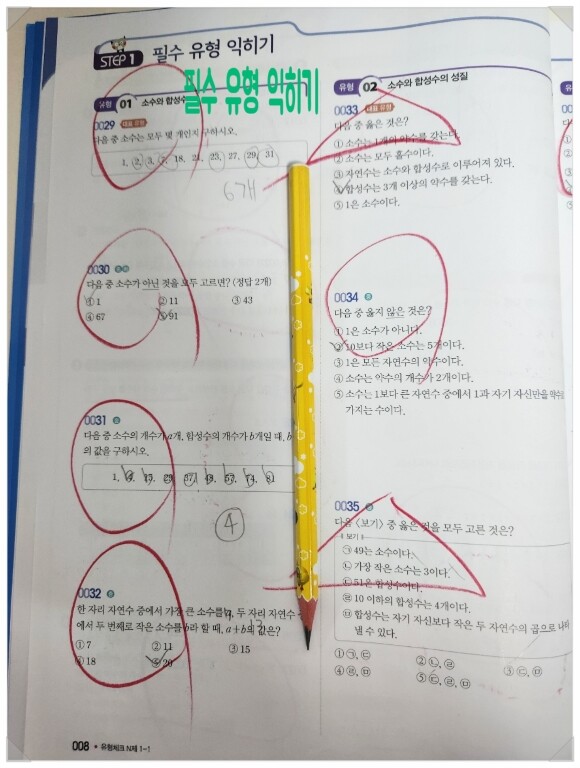 STEP 1 필수 유형 익히기
필수 유형 익히기
유형 01 소수와 합성수
0029 대표 유형
다음 중 소수는 모두 몇 개인지 구하시오.
1, 2, 3, 7, 18, 21, 23, 27, 29, 31
6개
0030
다음 중 소수가 아닌 것을 모두 고르면? (정답 2개)
① 1 ② 11 ③ 43
④ 67 ⑤ 91
0031
다음 중 소수의 개수가 a개, 합성수의 개수가 b개일 때, b
의 값을 구하시오.
1, 29, 37, 49, 57, 81
④
0032
한 자리 자연수 중에서 가장 큰 소수를 두 자리 자연수
에서 두 번째로 작은 소수를 b라 할 때, a+b의 값은?
① 7 ② 11 ③ 15
④ 18 ⑤ 20
유형 02 소수와 합성수의 성질
0033 대표 유형
다음 중 옳은 것은?
① 소수는 1개의 약수를 갖는다.
② 소수는 모두 홀수이다.
③ 자연수는 소수와 합성수로 이루어져 있다.
④ 합성수는 3개 이상의 약수를 갖는다.
⑤ 1은 소수이다.
0034
다음 중 옳지 않은 것은?
① 1은 소수가 아니다.
② 10보다 작은 소수는 5개이다.
③ 1은 모든 자연수의 약수이다.
④ 소수는 약수의 개수가 2개이다.
⑤ 소수는 1보다 큰 자연수 중에서 1과 자기 자신만을 약수로
가지는 수이다.
0035
다음 <보기> 중 옳은 것을 모두 고른 것은?
보기
㉠ 49는 소수이다.
㉡ 가장 작은 소수는 3이다.
㉢ 51은 합성수이다.
㉣ 10 이하의 합성수는 4개이다.
㉤ 합성수는 자기 자신보다 작은 두 자연수의 곱으로 나타
낼 수 있다.
① ㉠, ㉢ ② ㉡, ㉣ ③ ㉢, ㉤
④ ㉣, ㉤ ⑤ ㉢, ㉣, ㉤
008 • 유형체크 N제 1-1